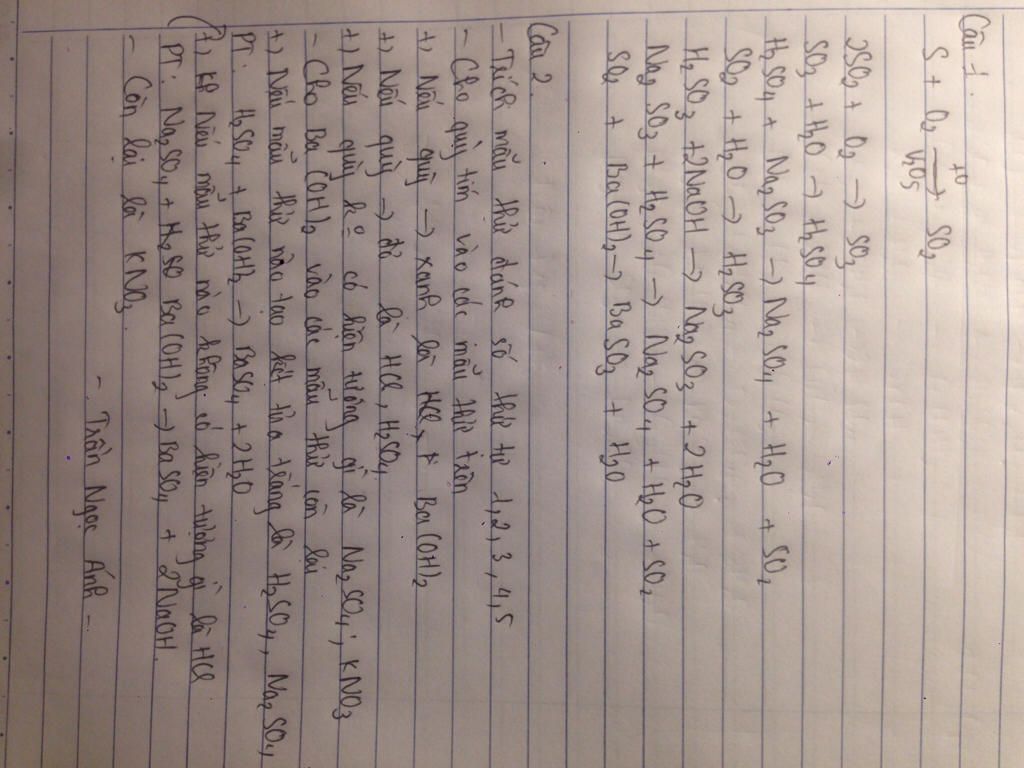 Câu 1:
S + O2 →(t°) SO2
2SO2 + O2 →(V2O5) SO3
SO3 + H2O → H2SO4
H2SO4 + Na2SO3 → Na2SO4 + H2O + SO2
SO2 + H2O → H2SO3
H2SO3 + 2NaOH → Na2SO3 + 2H2O
Na2SO3 + H2SO4 → Na2SO4 + H2O + SO2
SO2 + Ba(OH)2 → BaSO3 + H2O
Câu 2
- Trích mẫu thử đánh số thứ tự 1,2,3,4,5
- Cho quỳ tím vào các mẫu thử trên
+, Nếu quỳ → xanh là Ba(OH)2
+, Nếu quỳ → đỏ là HCl, H2SO4
+, Nếu quỳ k° có hiện tượng gì là Na2SO4; KNO3
- Cho Ba(OH)2 vào các mẫu thử còn lại
+, Nếu mẫu thử nào tạo kết tủa trắng là H2SO4, Na2SO4
PT: H2SO4 + Ba(OH)2 → BaSO4 + 2H2O
+, Nếu mẫu thử nào không có hiện tượng gì là HCl
PT: Na2SO4 + Ba(OH)2 → BaSO4 + 2NaOH.
- Còn lại là KNO3.
- Trần Ngọc Ánh -